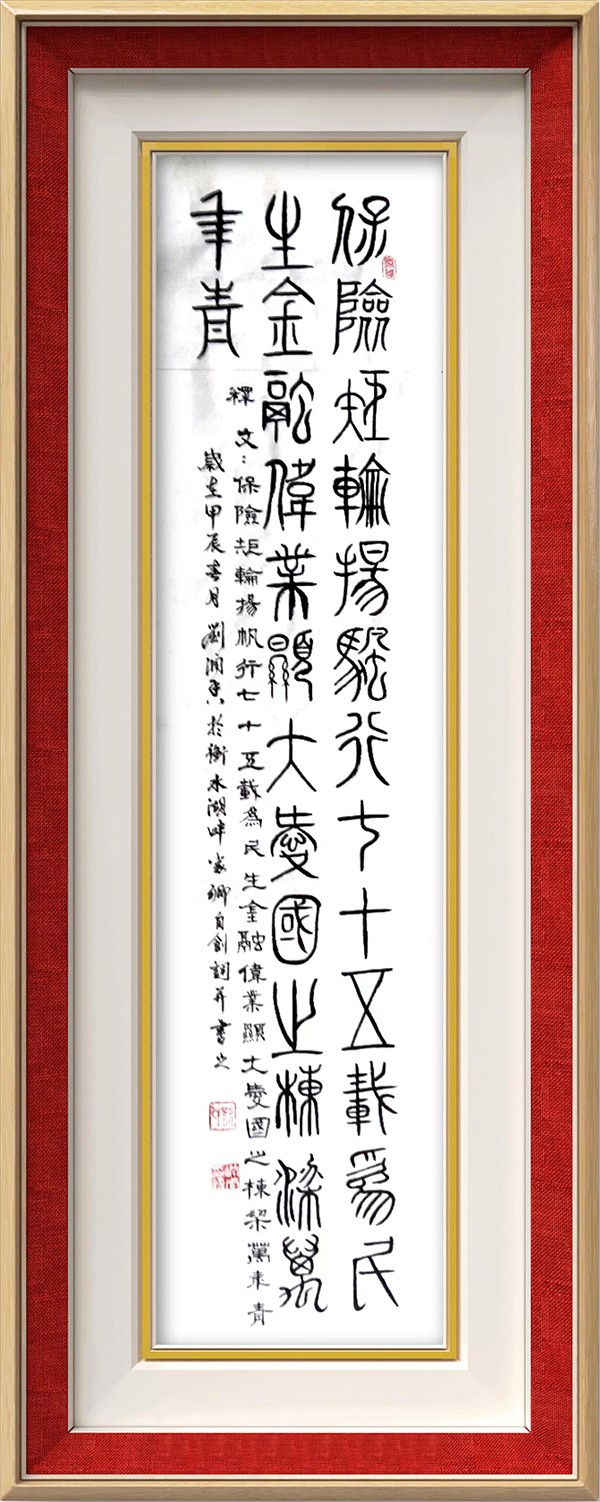 保險矩輪揚帆行七十五載為民
生金融偉業顯大愛國之棟梁萬
年青
釋文:保險矩輪揚帆行七十五載為民生金融偉業顯大愛國之棟梁萬年青
歲在甲辰春月劉潤香於衡水湖畔家鄉自創詞并書之